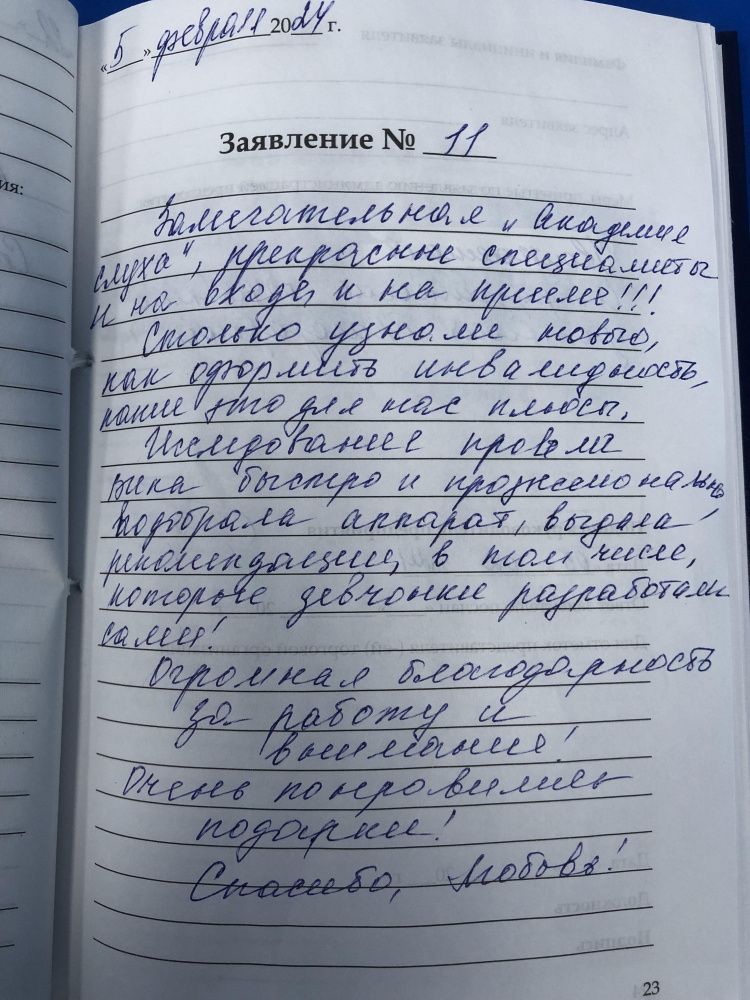 « 5 » февраля 2024 г.
Заявление № 11
Замечательная „Академие
слуха", прекрасные специалисты
и на входе, и на приеме!!!
Столько узнали нового,
как оформить инвалидность,
какие это для нас плюсы.
Исследование провели
быстро и профессионально,
подобрала аппарат, выдала
рекомендации, в том числе,
которые девчонки разработали
сами!
Огромная благодарность
за работу и
внимание!
Очень понравились
подарки!
Спасибо, Любовь!
23